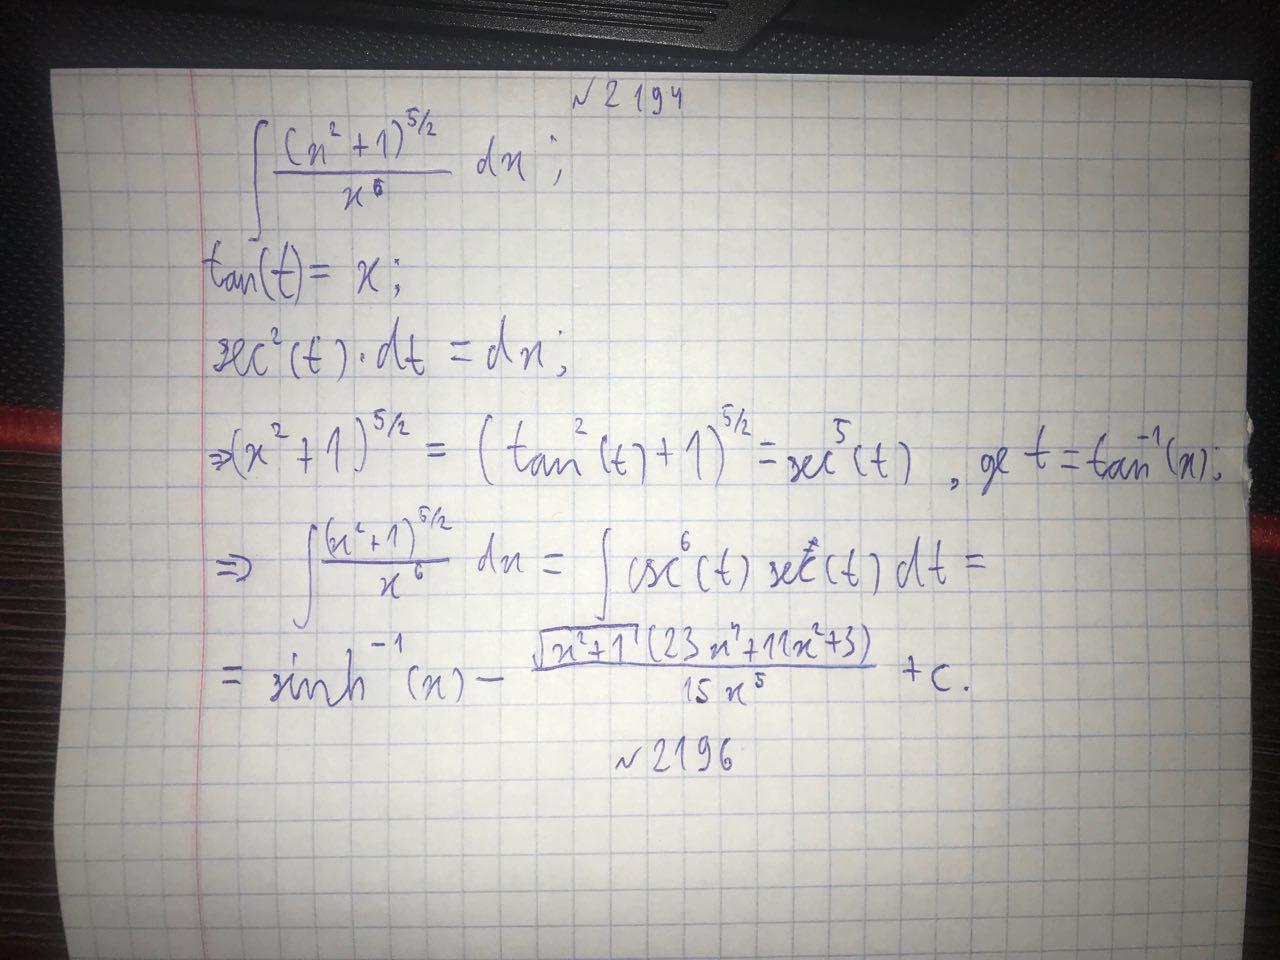 №2194
∫ (x²+1)^{5/2} / x⁶ dx;
tan(t) = x;
sec²(t)·dt = dx;
⇒(x²+1)^{5/2} = (tan²(t)+1)^{5/2} = sec⁵(t), де t = tan⁻¹(x);
⇒ ∫ (x²+1)^{5/2} / x⁶ dx = ∫ csc⁶(t) sec(t) dt =
= sinh⁻¹(x) − √(x²+1) (23x⁴+11x²+3) / 15x⁵ + c.
№2196